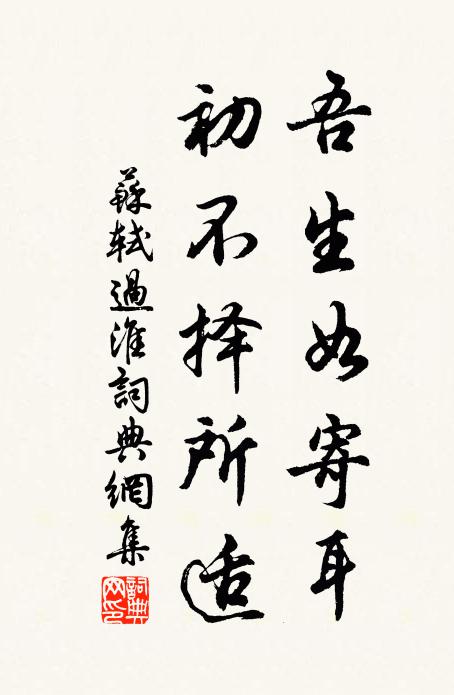 吾生如寄耳
初不择所适
蘇軾過淮詞典網集
詞典网印